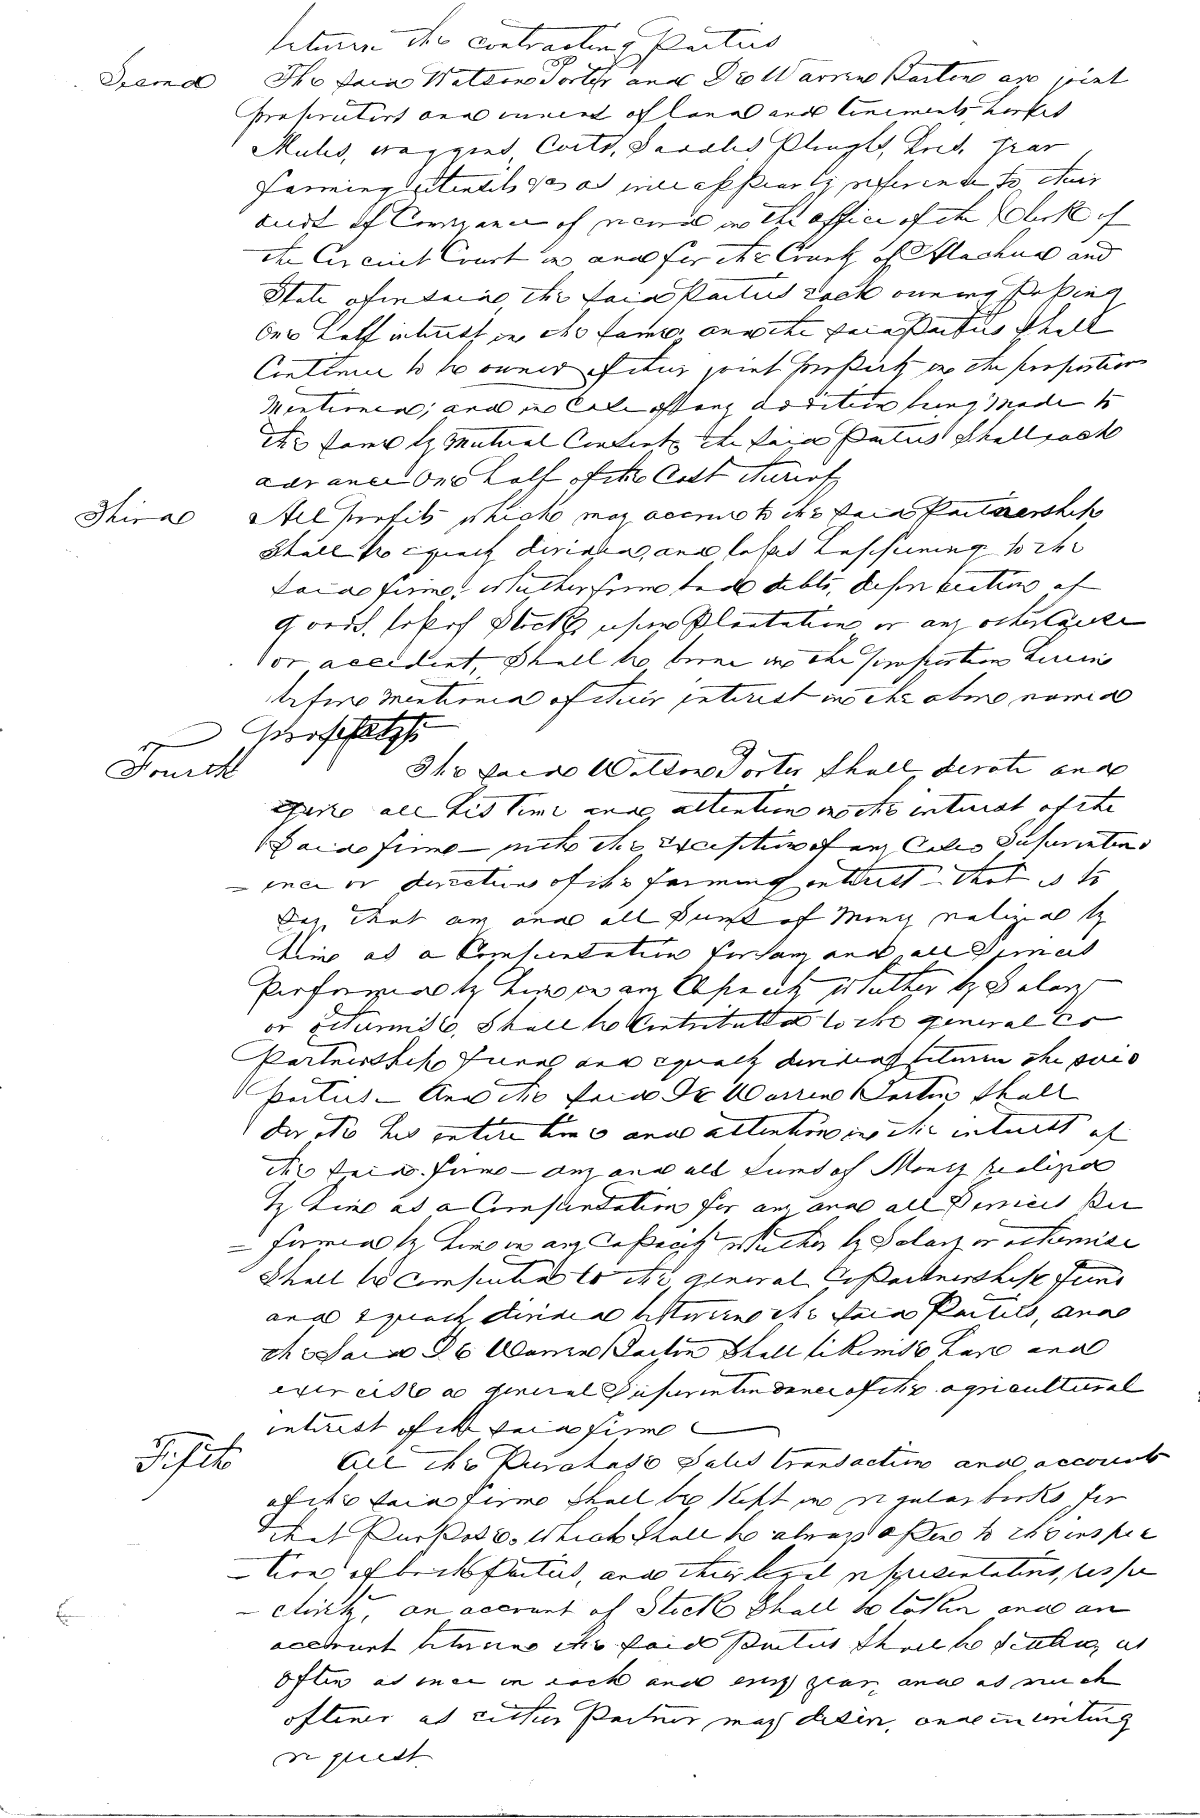 between the contracting Parties
Second The said Watson Porter and De Warren Bartin are joint
proprietors and owners of land and tenements, horses
Mules, waggons, Carts, Saddles, Ploughs, Hoes, gear
farming utensils &c as will appear by reference to their
deeds of Conveyance of record in the office of the Clerk of
the Circuit Court in and for the County of Alachua and
State aforesaid, the said Parties each owning
One half interest in the same, and the said Parties Shall
Continue to be owners of their joint property in the proportion
Mentioned; and in Case of any addition being Made to
the same by Mutual Consent, the said Parties Shall each
advance One half of the Cost thereof
Third All profits which may accrue to the said Partnership
Shall be equally divided, and losses happening to the
said firm, whether from bad debts, depreciation of
goods, loss of Stock, upon Plantation or any other Cause
or accident, Shall be borne in the proportion herein
before mentioned of their interest in the above named
Fourth The said Watson Porter Shall devote and
give all his time and attention in the interest of the
Said firm – with the exception of any Superintend
= ence or directions of the farming interest – that is to
Say, that any and all Sums of Money realized by
him as a Compensation for any and all Services
Performed by him in any Capacity whether by Salary
or otherwise, Shall be Contributed to the general Co
Partnership Fund and equally divided between the said
parties – And the said De Warren Bartin Shall
devote his entire time and attention in the interest of
the said firm – any and all Sums of Money realized
by him as a Compensation for any and all Services Per
= formed by him in any Capacity whether by Salary or otherwise
Shall be to the general CoPartnership Fund
and equally divided between the said Parties, and
the Said De Warren Bartin Shall likewise have and
exercise a general Superintendance of the agricultural
interest of the said firm
Fifth All the Purchase Sales transaction and accounts
of the said firm Shall be Kept in regular books for
that Purpose, which Shall be always open to the inspec
– tion of both Parties, and their legal representatives, respe
– ctively, an account of Stock Shall be taken and an
account between the said Parties Shall be Settled, as
often as once in each and every year, and as much
oftener as either Partner may desire, and in writing
request.